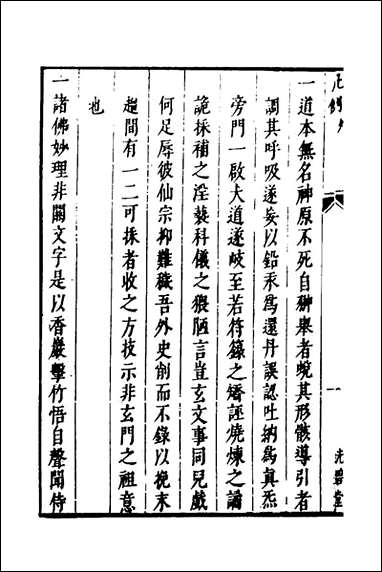 凡例
一
光碧堂
一道本無名神原不死自翀舉者蛻其形骸導引者
調其呼吸遂妄以鉛汞爲還丹誤認吐納爲真炁
旁門一啟大道遂岐至若符籙之矯誣燒煉之譎
詭採補之淫褻科儀之猥陋言豈玄文事同兒戲
何足辱彼仙宗抑難穢吾外史削而不錄以挽末
趨間有一二可採者收之方技示非玄門之祖意
也
一諸佛妙理非關文字是以香嚴擊竹悟自聲聞侍